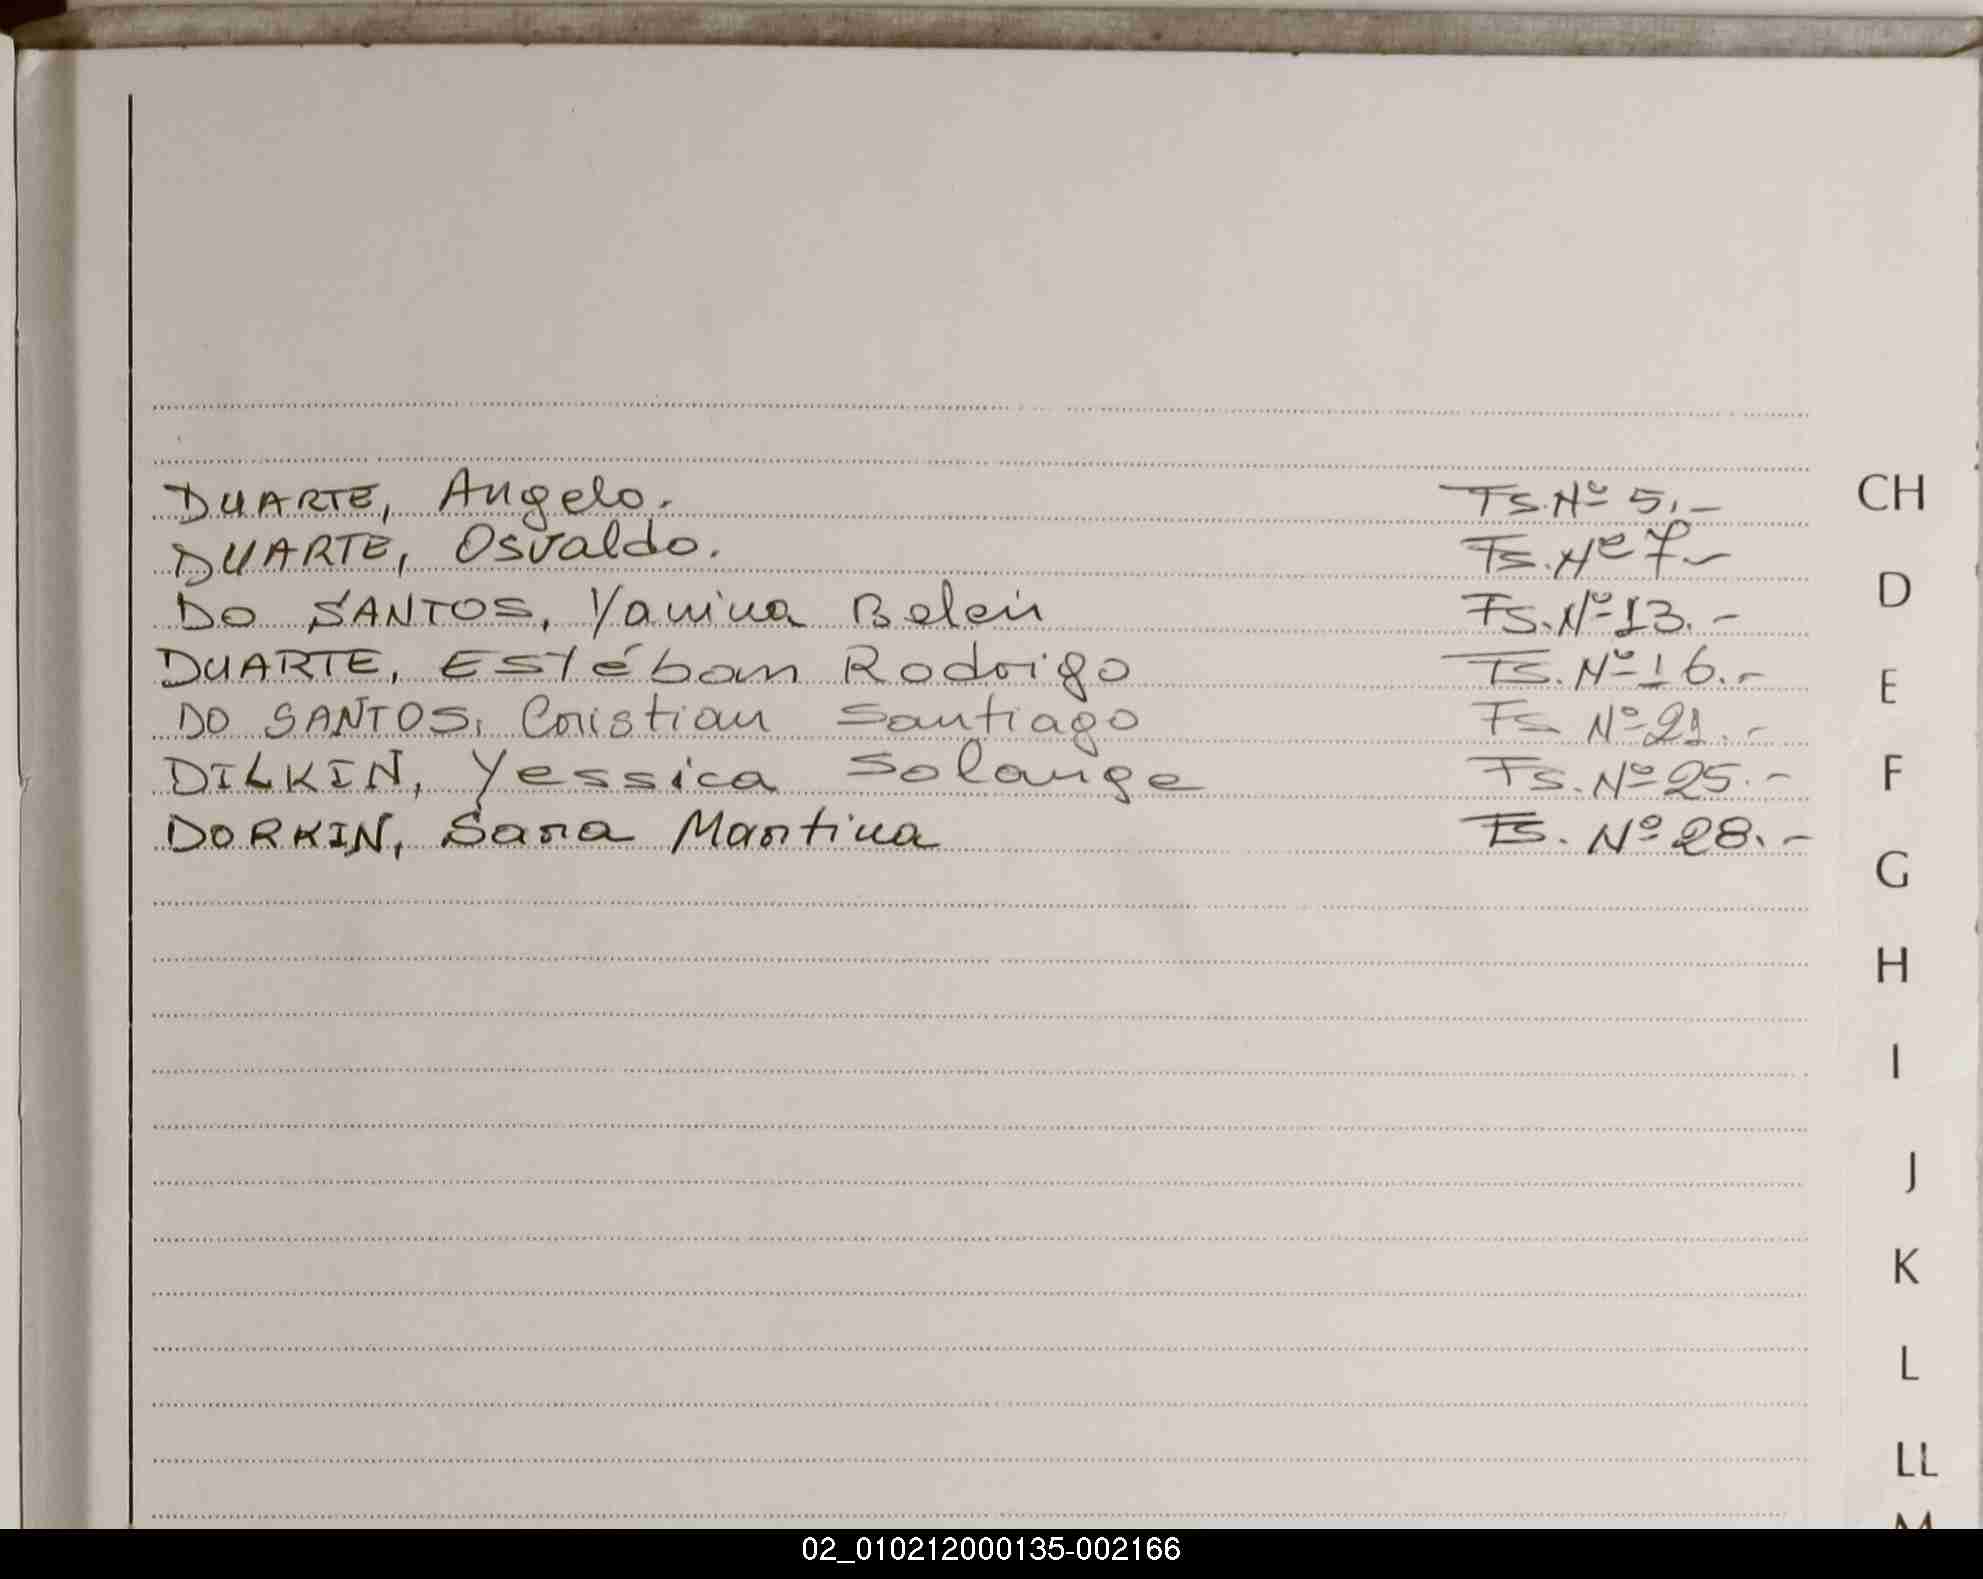 DUARTE, Angelo. Fs. Nº 5.-
CH
DUARTE, Osvaldo. Fs. Nº 7.-
D
DO SANTOS, Yanina Belén Fs. Nº 13.-
DUARTE, Estéban Rodrigo Fs. Nº 16.-
E
DO SANTOS, Cristian Santiago Fs Nº 21.-
DILKIN, Yessica Solange Fs. Nº 25.-
F
DORKIN, Sara Martina Fs. Nº 28.-
G
H
I
J
K
L
LL
M
02_010212000135-002166